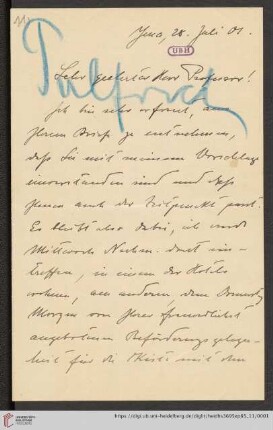 Jena, 28. Juli 01.
UBH
Pulfrich
Sehr geehrter Herr Professor!
Ich bin sehr erfreut, aus
Ihrem Briefe zu entnehmen,
daß Sie mit meinem Vorschlage
einverstanden sind und daß
Ihnen auch der Zeitpunkt passt.
Es bleibt also dabei, ich werde
Mittwoch Nachm. dort ein-
treffen, in einem der Hotels
wohnen, am anderen, dem Donnerstag
Morgen von Ihrer freundlichst
angebotenen Beförderungsgelegen-
heit für die Kiste mit dem
https://digi.ub.uni-heidelberg.de/diglit/heidhs3695eps95_11/0001